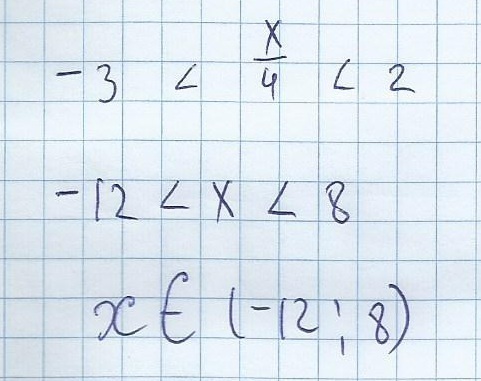 -3 < x/4 < 2
-12 < x < 8
x ∈ (-12; 8)